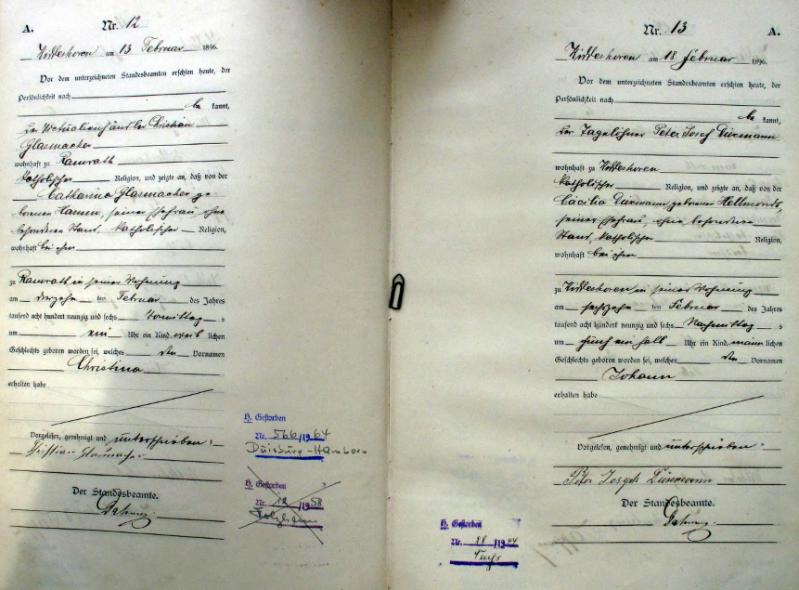 A.
Nr. 12
am 13 Februar 1896.
Vor dem unterzeichneten Standesbeamten erschien heute, der
Persönlichkeit nach
be kannt,
der Victualienhändler Christian
Glasmacher
wohnhaft zu Ramrath
katholischer Religion, und zeigte an, daß von der
Catharina Glasmacher ge-
borenen Hamm, seiner Ehefrau, ohne
besonderen Stand, katholischer Religion,
wohnhaft bei ihm
zu Ramrath in seiner Wohnung
am dreizehn ten Februar des Jahres
tausend acht hundert neunzig und sechs Vormittags
um ein Uhr ein Kind weib lichen
Geschlechts geboren worden sei, welches den Vornamen
Christina
erhalten habe
Vorgelesen, genehmigt und unterschrieben:
Christian Glasmacher
Der Standesbeamte.
H. Gestorben
Nr. 566/1964
Duisburg-Hamborn
H. Gestorben
Nr. 12/1958
Nr. 13
A.
am 18 Februar 1896.
Vor dem unterzeichneten Standesbeamten erschien heute, der
Persönlichkeit nach
be kannt,
der Tagelöhner Peter Josef
wohnhaft zu
katholischer Religion, und zeigte an, daß von der
Cäcilia geborenen Hellmonds,
seiner Ehefrau, ohne besonderen
Stand, katholischer Religion,
wohnhaft bei ihm
zu in seiner Wohnung
am sechszehn ten Februar des Jahres
tausend acht hundert neunzig und sechs Nachmittags
um fünf ein halb Uhr ein Kind männ lichen
Geschlechts geboren worden sei, welches den Vornamen
Johann
erhalten habe
Vorgelesen, genehmigt und unterschrieben:
Peter Joseph
Der Standesbeamte.
H. Gestorben
Nr.